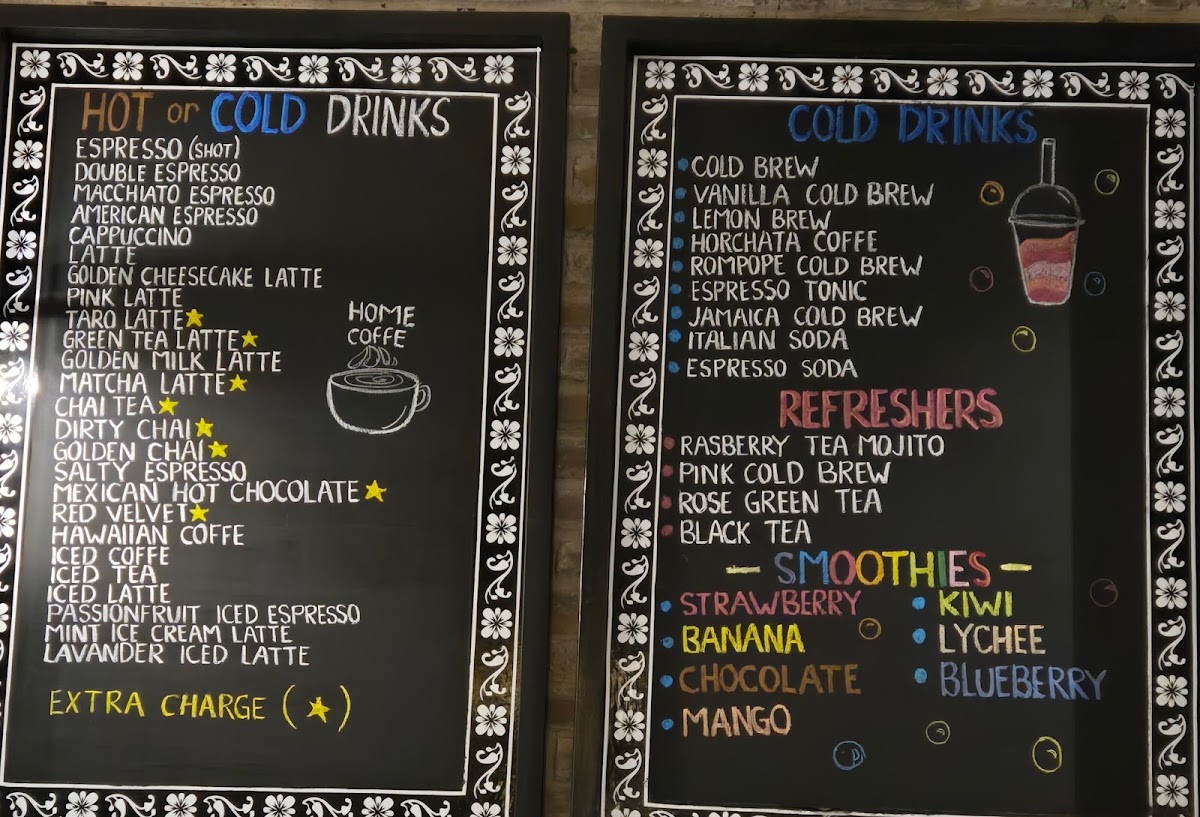 HOT or COLD DRINKS
ESPRESSO (SHOT)
DOUBLE ESPRESSO
MACCHIATO ESPRESSO
AMERICAN ESPRESSO
CAPPUCCINO
LATTE
GOLDEN CHEESECAKE LATTE
PINK LATTE
TARO LATTE★
GREEN TEA LATTE★
GOLDEN MILK LATTE
MATCHA LATTE★
CHAI TEA★
DIRTY CHAI★
GOLDEN CHAI★
SALTY ESPRESSO
MEXICAN HOT CHOCOLATE★
RED VELVET★
HAWAIIAN COFFE
ICED COFFE
ICED TEA
ICED LATTE
PASSIONFRUIT ICED ESPRESSO
MINT ICE CREAM LATTE
LAVANDER ICED LATTE
EXTRA CHARGE (★)
HOME
COFFE
COLD DRINKS
• COLD BREW
• VANILLA COLD BREW
• LEMON BREW
• HORCHATA COFFE
• ROMPOPE COLD BREW
• ESPRESSO TONIC
• JAMAICA COLD BREW
• ITALIAN SODA
• ESPRESSO SODA
REFRESHERS
• RASBERRY TEA MOJITO
• PINK COLD BREW
• ROSE GREEN TEA
• BLACK TEA
- SMOOTHIES -
• STRAWBERRY
• BANANA
• CHOCOLATE
• MANGO
• KIWI
• LYCHEE
• BLUEBERRY